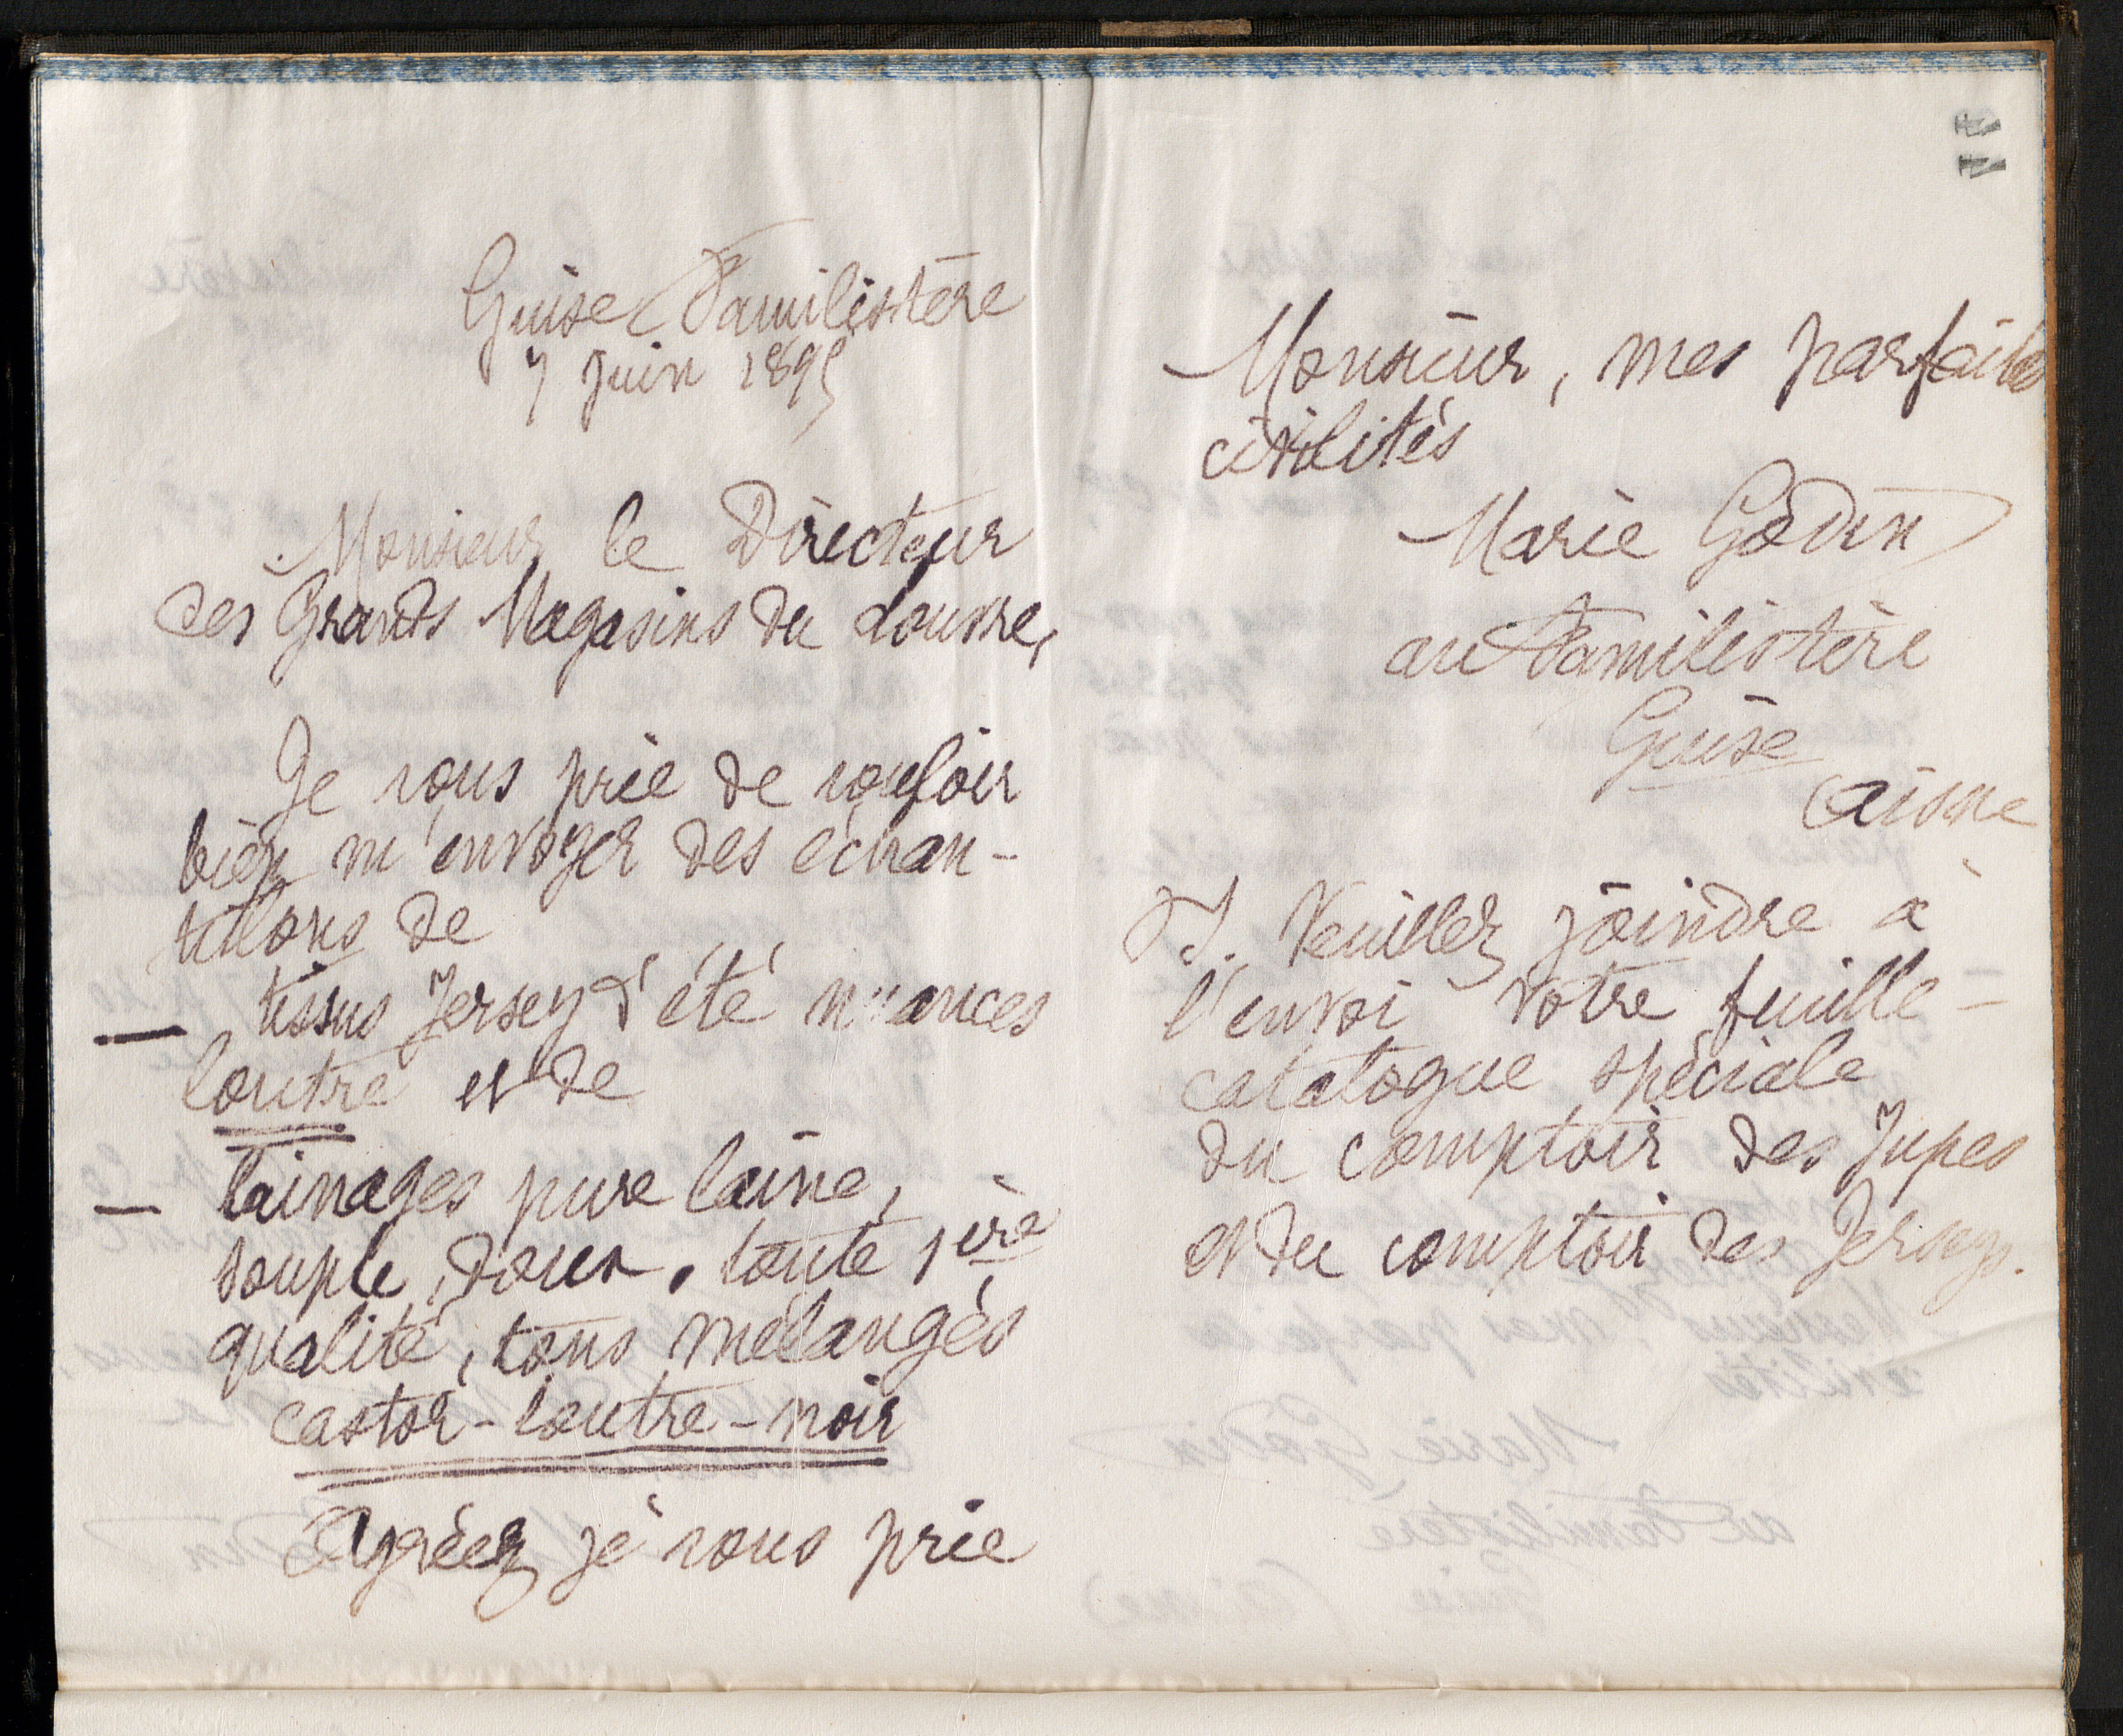 Guise Familistère
7 juin 1895
Monsieur le Directeur
des Grands Magasins du Louvre,
Je vous prie de vouloir
bien m'envoyer des échan-
tillons de
— tissus Jersey d'été nuances
loutre et de
— lainages pure laine,
souple, doux, toute 1ère
qualité, tons mélangés
castor-loutre-noir
Agréez je vous prie
11
Monsieur, mes parfaites
civilités
Marie Godin
au Familistère
Guise
Aisne
Veuillez joindre à
l'envoi votre feuille-
catalogue spéciale
du comptoir des Jupes
et du comptoir des Jerseys.